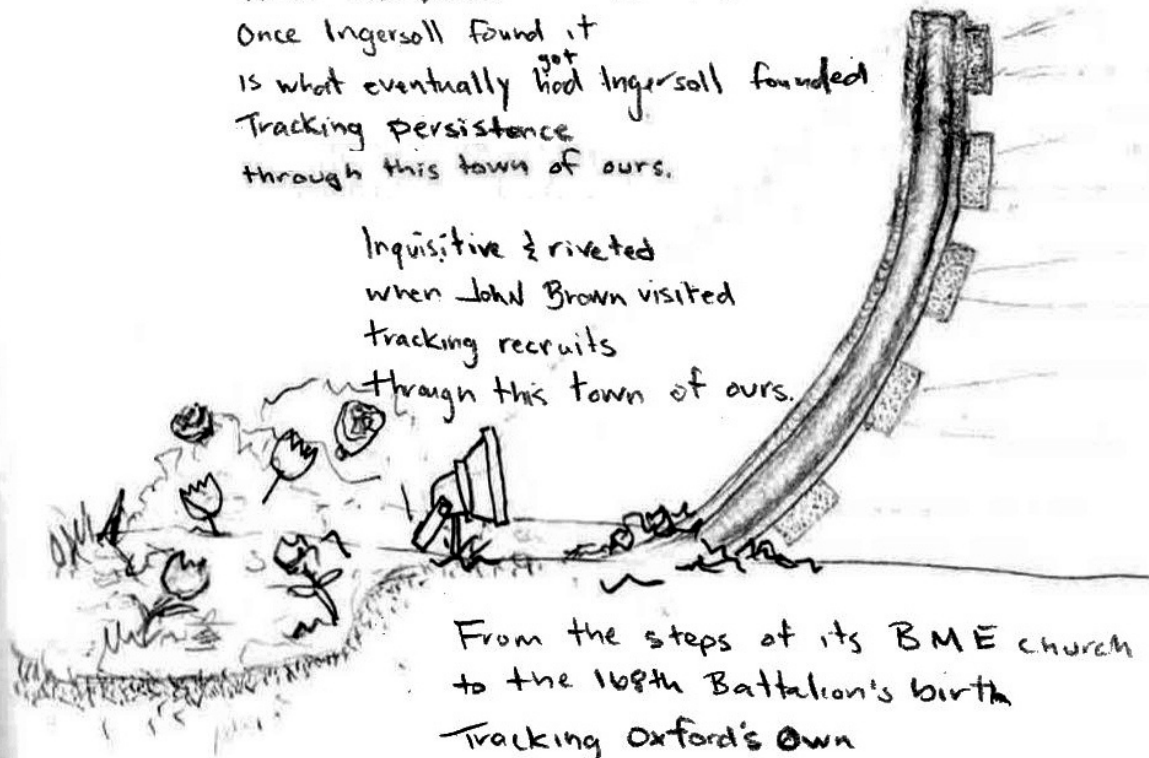 Once Ingersoll found it
is what eventually had got Ingersoll founded
Tracking persistence
through this town of ours.
Inquisitive & riveted
when John Brown visited
tracking recruits
through this town of ours.
From the steps of its BME church
to the 168th Battalion's birth
Tracking Oxford's Own